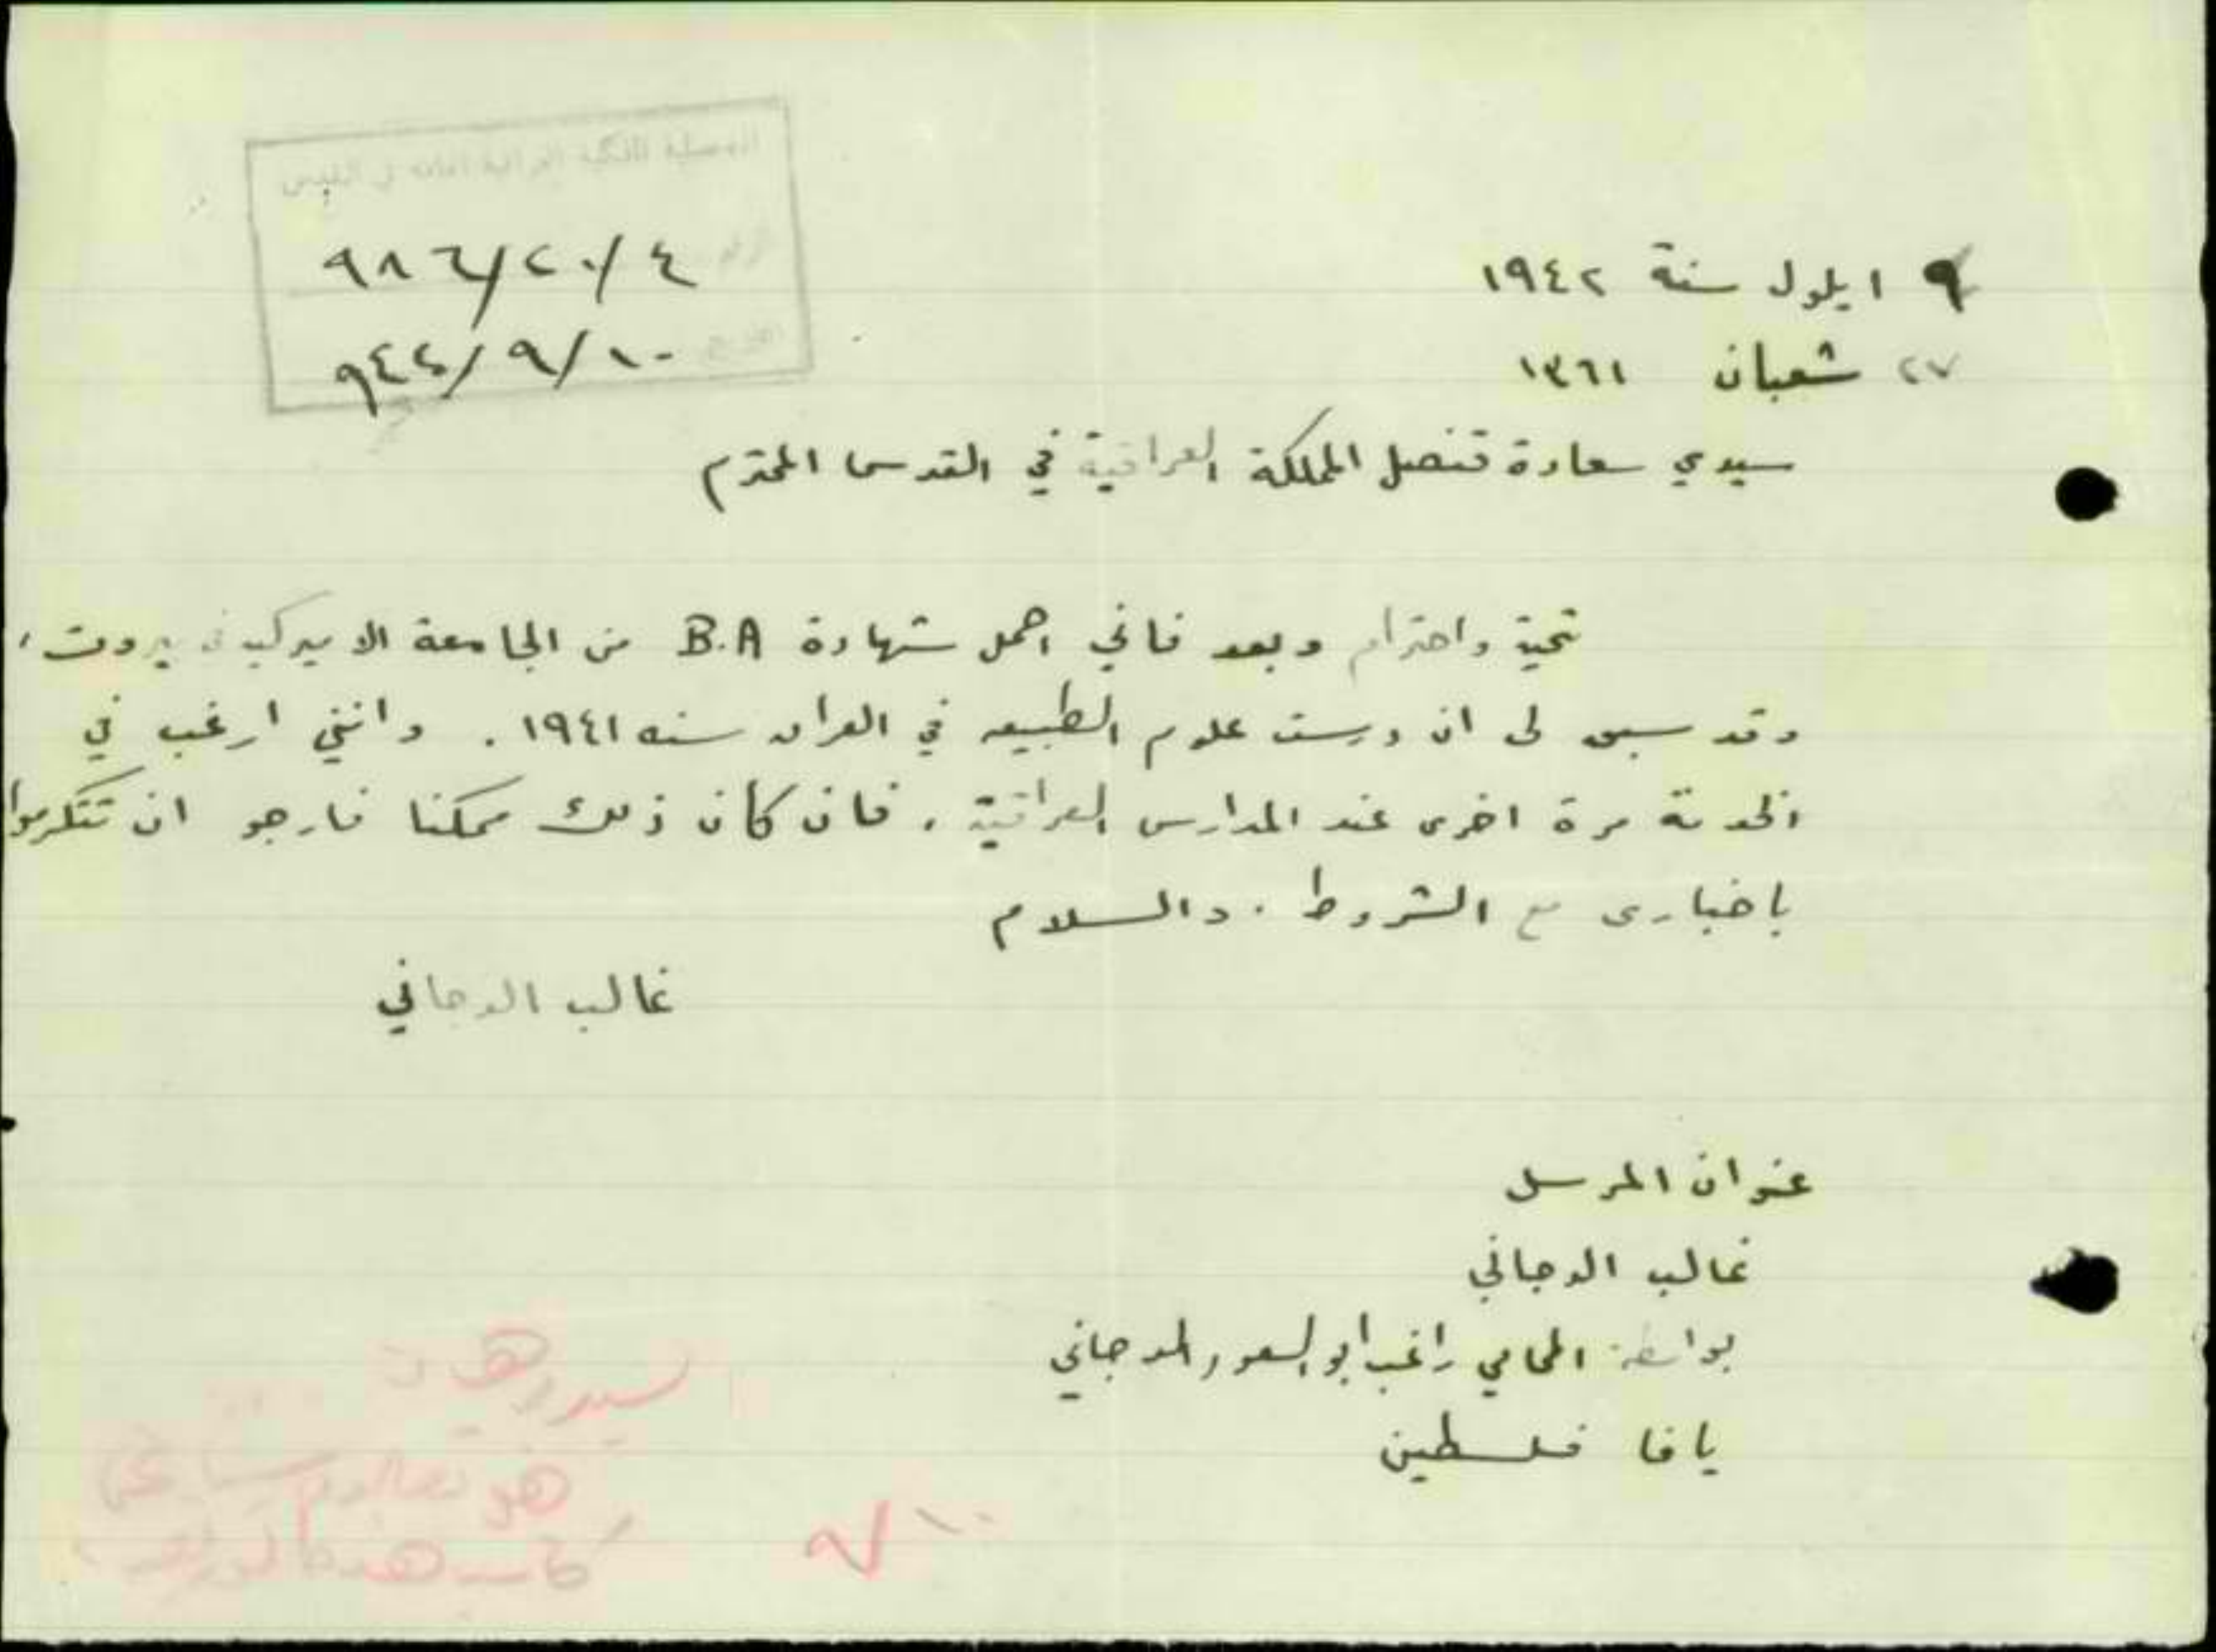 القنصلية الملكية العراقية العامة في القدس
الرقم ٩٨٦/٢٠/٤
التاريخ ٩٤٢/٩/١٠
٩ ايلول سنة ١٩٤٢
٢٧ شعبان ١٣٦١
سيدي سعادة قنصل المملكة العراقية في القدس المحترم
تحية واحترام وبعد فاني احمل شهادة B.A من الجامعة الاميركية في بيروت،
وقد سبق لى ان درست علوم الطبيعه في العراق سنه ١٩٤١. وانني ارغب في
الخدمة مرة اخرى عند المدارس العراقية. فان كان ذلك ممكنا فارجو ان تتكرموا
باخبارى مع الشروط. والسلام
غالب الدجاني
عنوان المرسل
غالب الدجاني
بواسطة المحامي راغب ابو السعود الدجاني
يافا فلسطين
٩/١٠